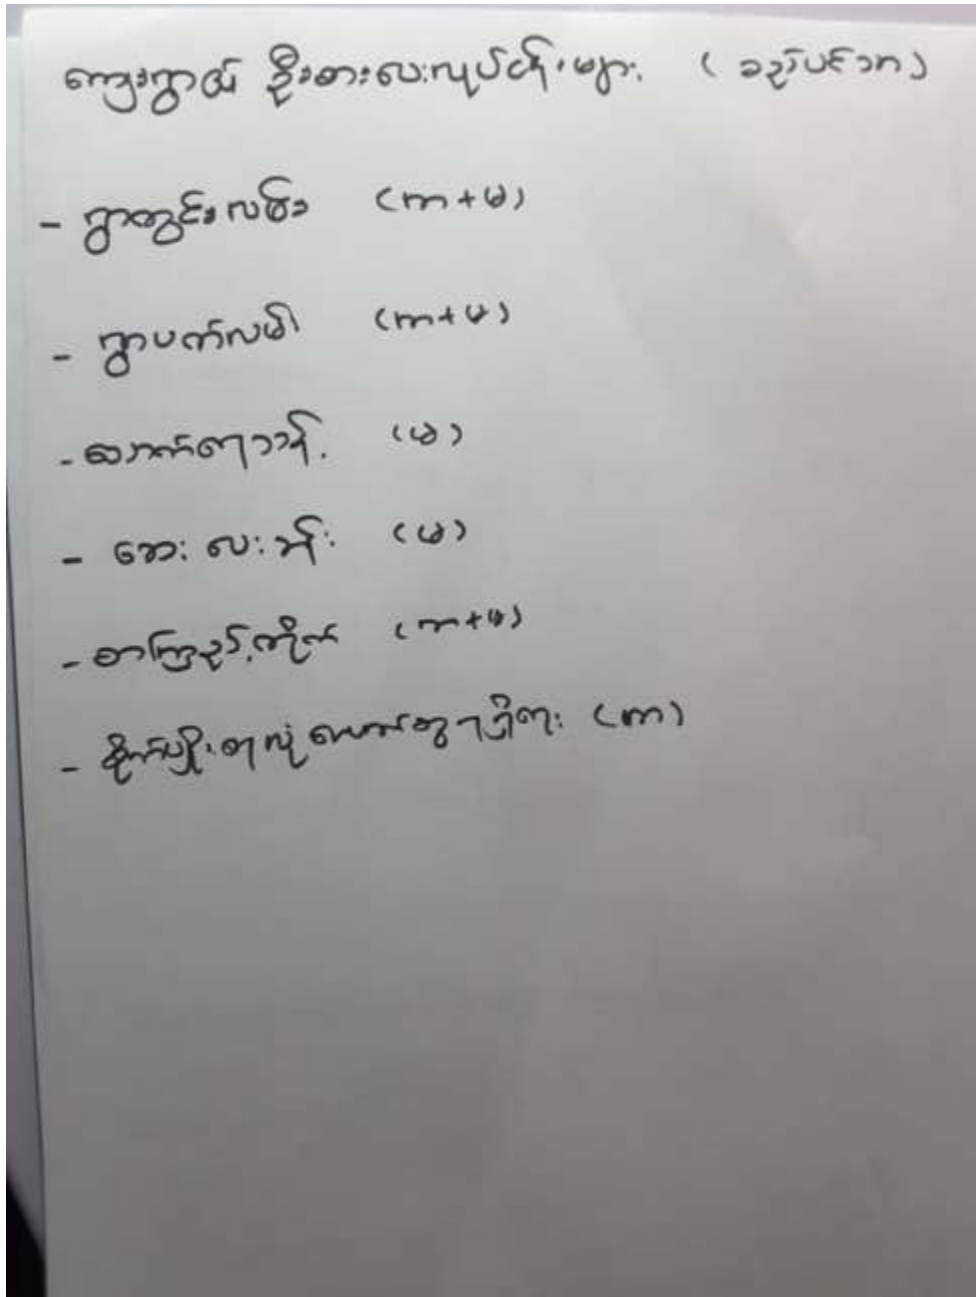 ကျေးရွာ၏ ဦးစားပေးလုပ်ငန်းများ ( ခည်ပင်သာ )
- ရွာတွင်းလမ်း (ကာ+မ)
- ရွာပတ်လမ်း (ကာ+မ)
- သောက်ရေသန့် (မ)
- ဆေးပေးခန်း (မ)
- စာကြည့်တိုက် (ကာ+မ)
- စိုက်ပျိုးရေလုံလောက်စွာရရှိရေး (ကာ)